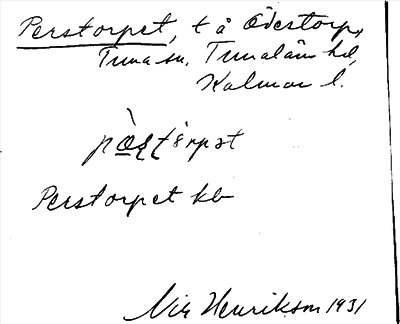 Perstorpet, t å Ödestorp,
Tuna sn, Tunaläns hd,
Kalmar l.
Perstorpet kb
Henrikson 1931